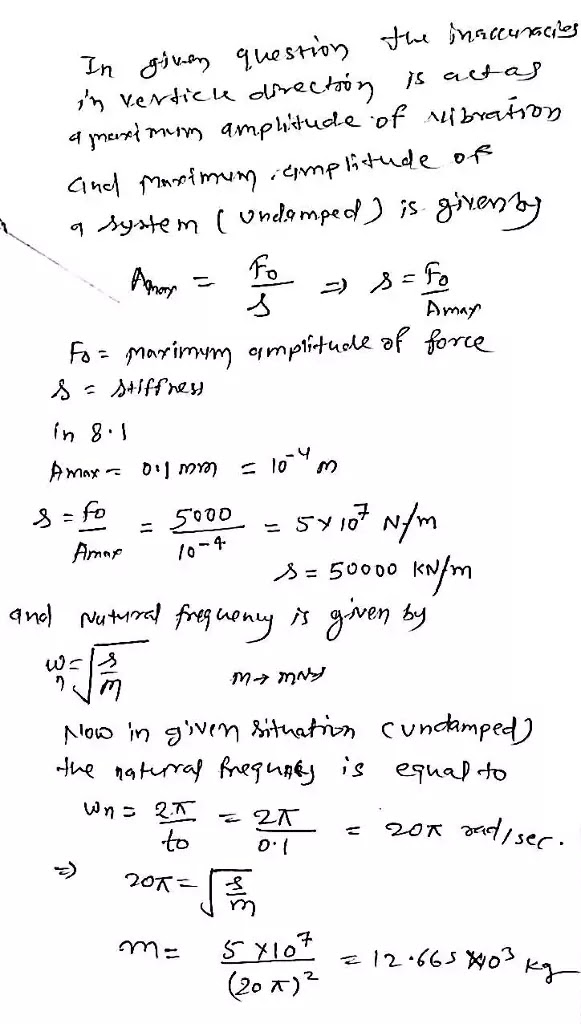 In given question the inaccuracies
in verticle direction is act as
a maximum amplitude of vibration
and maximum amplitude of
a system (undamped) is given by
Amax = Fo/s ⇒ s = Fo/Amax
Fo = maximum amplitude of force
s = stiffness
in 8.1
Amax = 0.1 mm = 10⁻⁴ m
s = fo/Amax = 5000/10⁻⁴ = 5×10⁷ N/m
s = 50000 KN/m
and Natural frequency is given by
ωn = √(s/m) m → mass
Now in given situation (undamped)
the natural frequency is equal to
ωn = 2π/to = 2π/0.1 = 20π rad/sec.
⇒ 20π = √(s/m)
m = 5×10⁷/(20π)² = 12.665×10³ kg